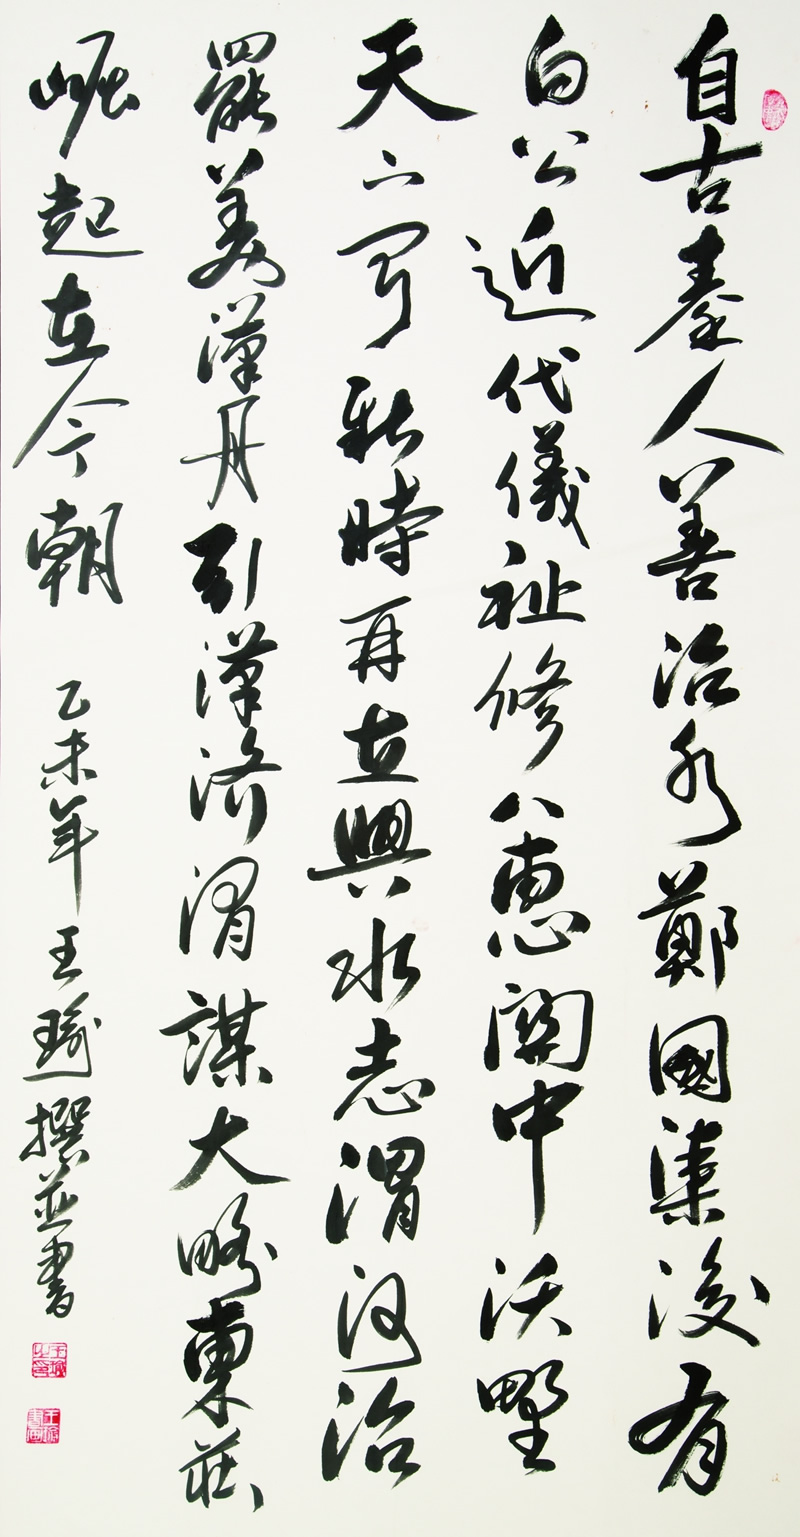 自古秦人善治水鄭國渠後有
白公近代儀祉修八惠關中沃野
天下聞新時再立興水志渭河治
罷美漢丹引漢濟渭謀大略東莊
崛起在今朝 乙未年王瑜撰並書